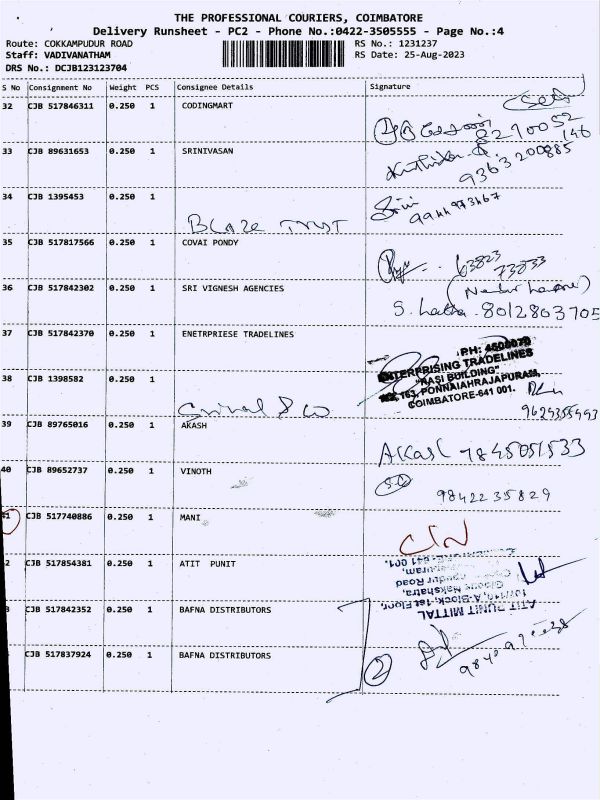 THE PROFESSIONAL COURIERS, COIMBATORE
Delivery Runsheet - PC2 - Phone No.:0422-3505555 - Page No.:4
Route: COKKAMPUDUR ROAD
Staff: VADIVANATHAM
DRS No.: DCJB123123704
RS No.: 1231237
RS Date: 25-Aug-2023
S No Consignment No Weight PCS Consignee Details Signature
32 CJB 517846311 0.250 1 CODINGMART
33 CJB 89631653 0.250 1 SRINIVASAN
9363200885
34 CJB 1395453 0.250 1
Blaze TRUST
35 CJB 517817566 0.250 1 COVAI PONDY
63823
73833
36 CJB 517842302 0.250 1 SRI VIGNESH AGENCIES
S. Latha - 8012803705
37 CJB 517842370 0.250 1 ENETRPRIESE TRADELINES
PH: 4500070
ENTERPRISING TRADELINES
"NASI BUILDING"
163, PONNAIAHRAJAPURAM,
COIMBATORE-641 001.
38 CJB 1398582 0.250 1
9629355493
39 CJB 89765016 0.250 1 AKASH
AKASH 7845051533
40 CJB 89652737 0.250 1 VINOTH
9842235829
41 CJB 517740886 0.250 1 MANI
2 CJB 517854381 0.250 1 ATIT PUNIT
ATIT PUNIT MITTAL
A-Block, 1st Floor,
Nakshatra,
Road
3 CJB 517842352 0.250 1 BAFNA DISTRIBUTORS
CJB 517837924 0.250 1 BAFNA DISTRIBUTORS
2